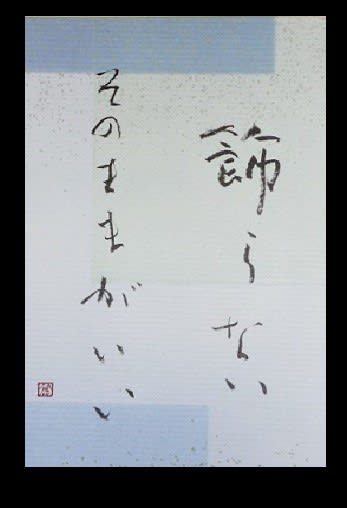 飾らない
そのままがいい